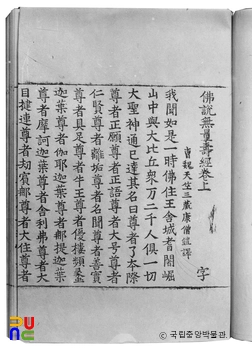 佛說無量壽經卷上
曹魏天竺三藏康僧鎧譯
字
我聞如是一時佛住王舍城耆闍崛
山中與大比丘衆万二千人俱一切
大聖神通已達其名曰尊者了本際
尊者正願尊者正語尊者大号尊者
仁賢尊者離垢尊者名聞尊者善實
尊者具足尊者牛王尊者優樓頻蠡
迦葉尊者伽耶迦葉尊者那提迦葉
尊者摩訶迦葉尊者舍利弗尊者大
目揵連尊者劫賓那尊者大住尊者
국립중앙박물관